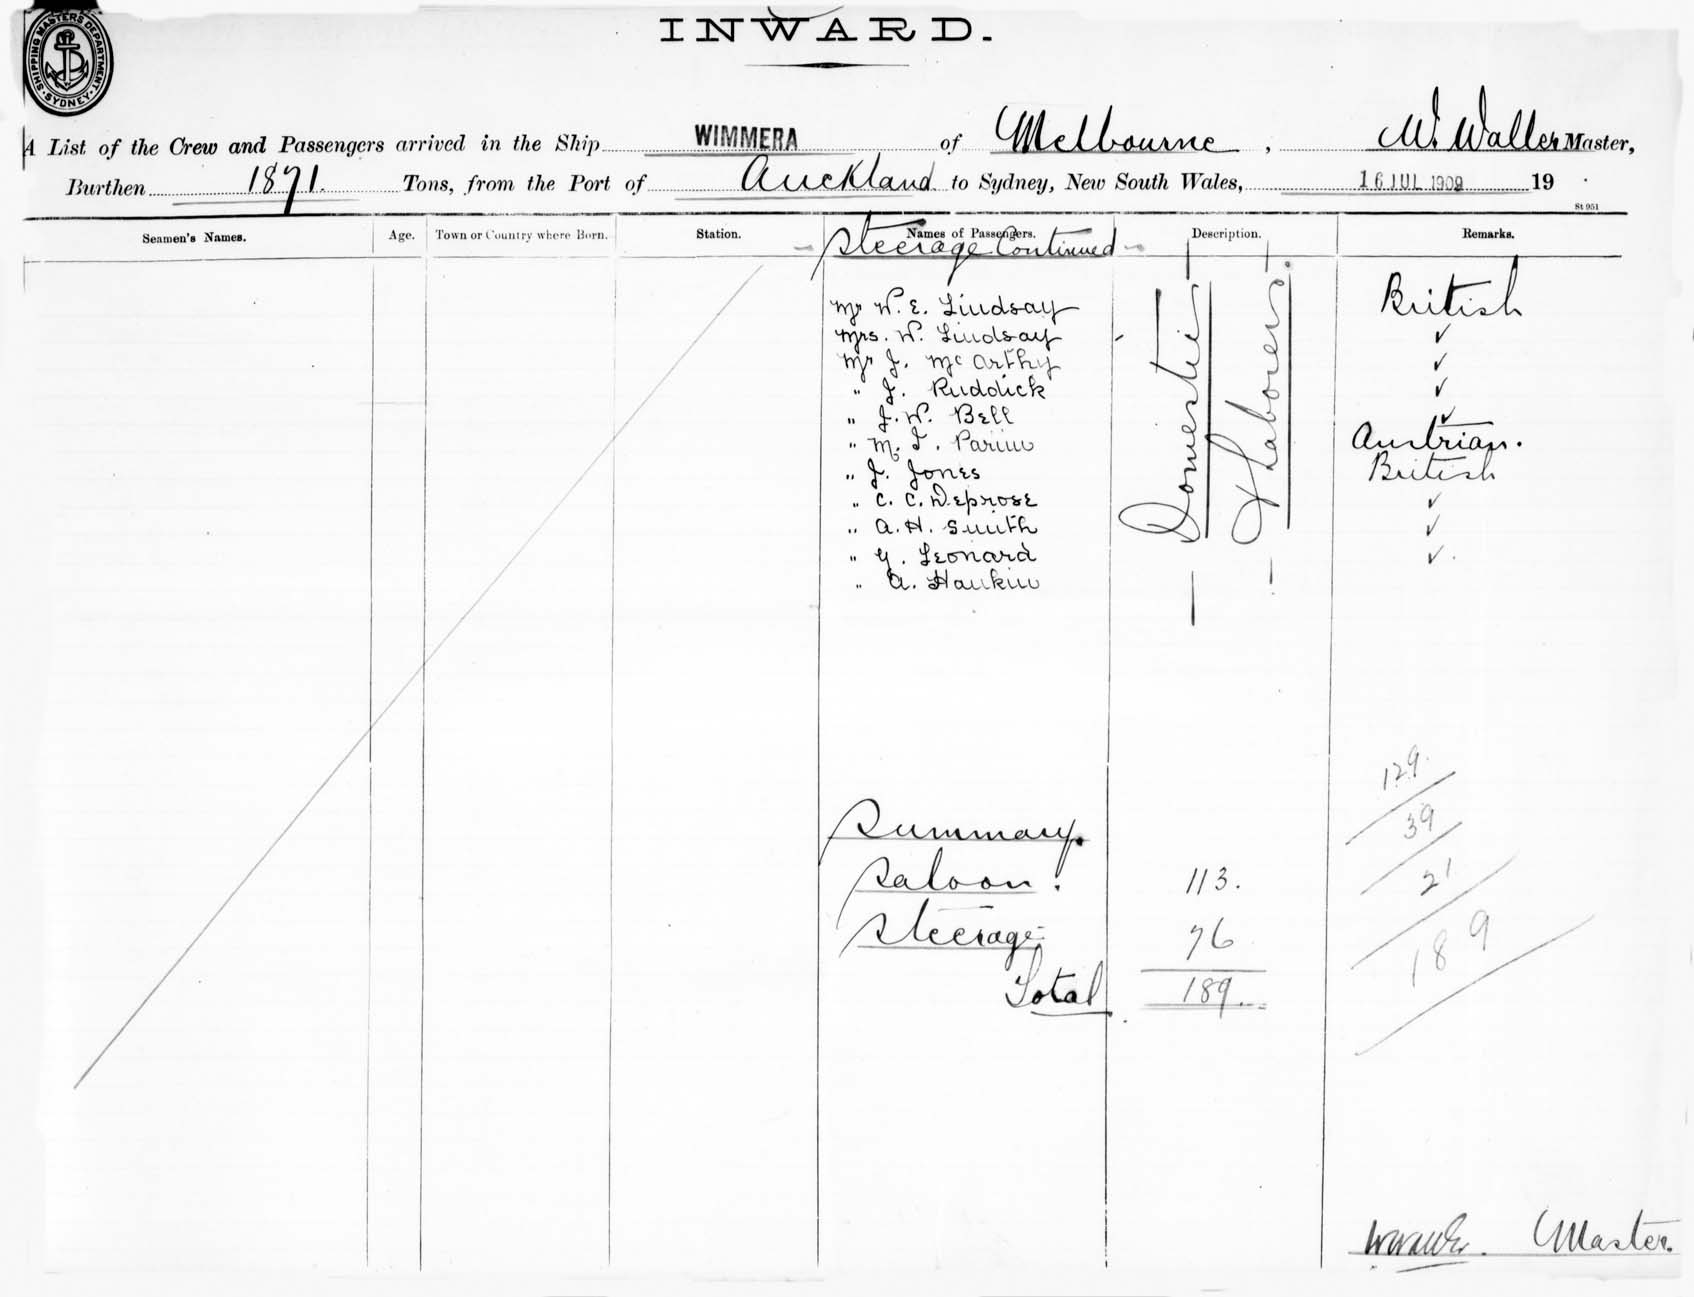 INWARD.
SHIPPING MASTERS DEPARTMENT
SYDNEY
A List of the Crew and Passengers arrived in the Ship WIMMERA of Melbourne, W. Waller Master,
Burthen 1871. Tons, from the Port of Auckland to Sydney, New South Wales, 16 JUL 1909 19
St 951
Seamen's Names. Age. Town or Country where Born. Station. Names of Passengers. Description. Remarks.
Steerage Continued
Mr W. E. Lindsay British
Mrs. W. Lindsay ✓
Mr J. McArthy ✓
" J. Ruddick ✓
" J. W. Bell ✓
" M. T. Austrian.
" J. Jones British
" C. C. Deprose ✓
" A. H. Smith ✓
" G. Leonard ✓
" A. Hankin
Domestic
& Labourers.
129.
39
21
189
Summary.
Saloon. 113.
Steerage 76
Total 189.
Master.